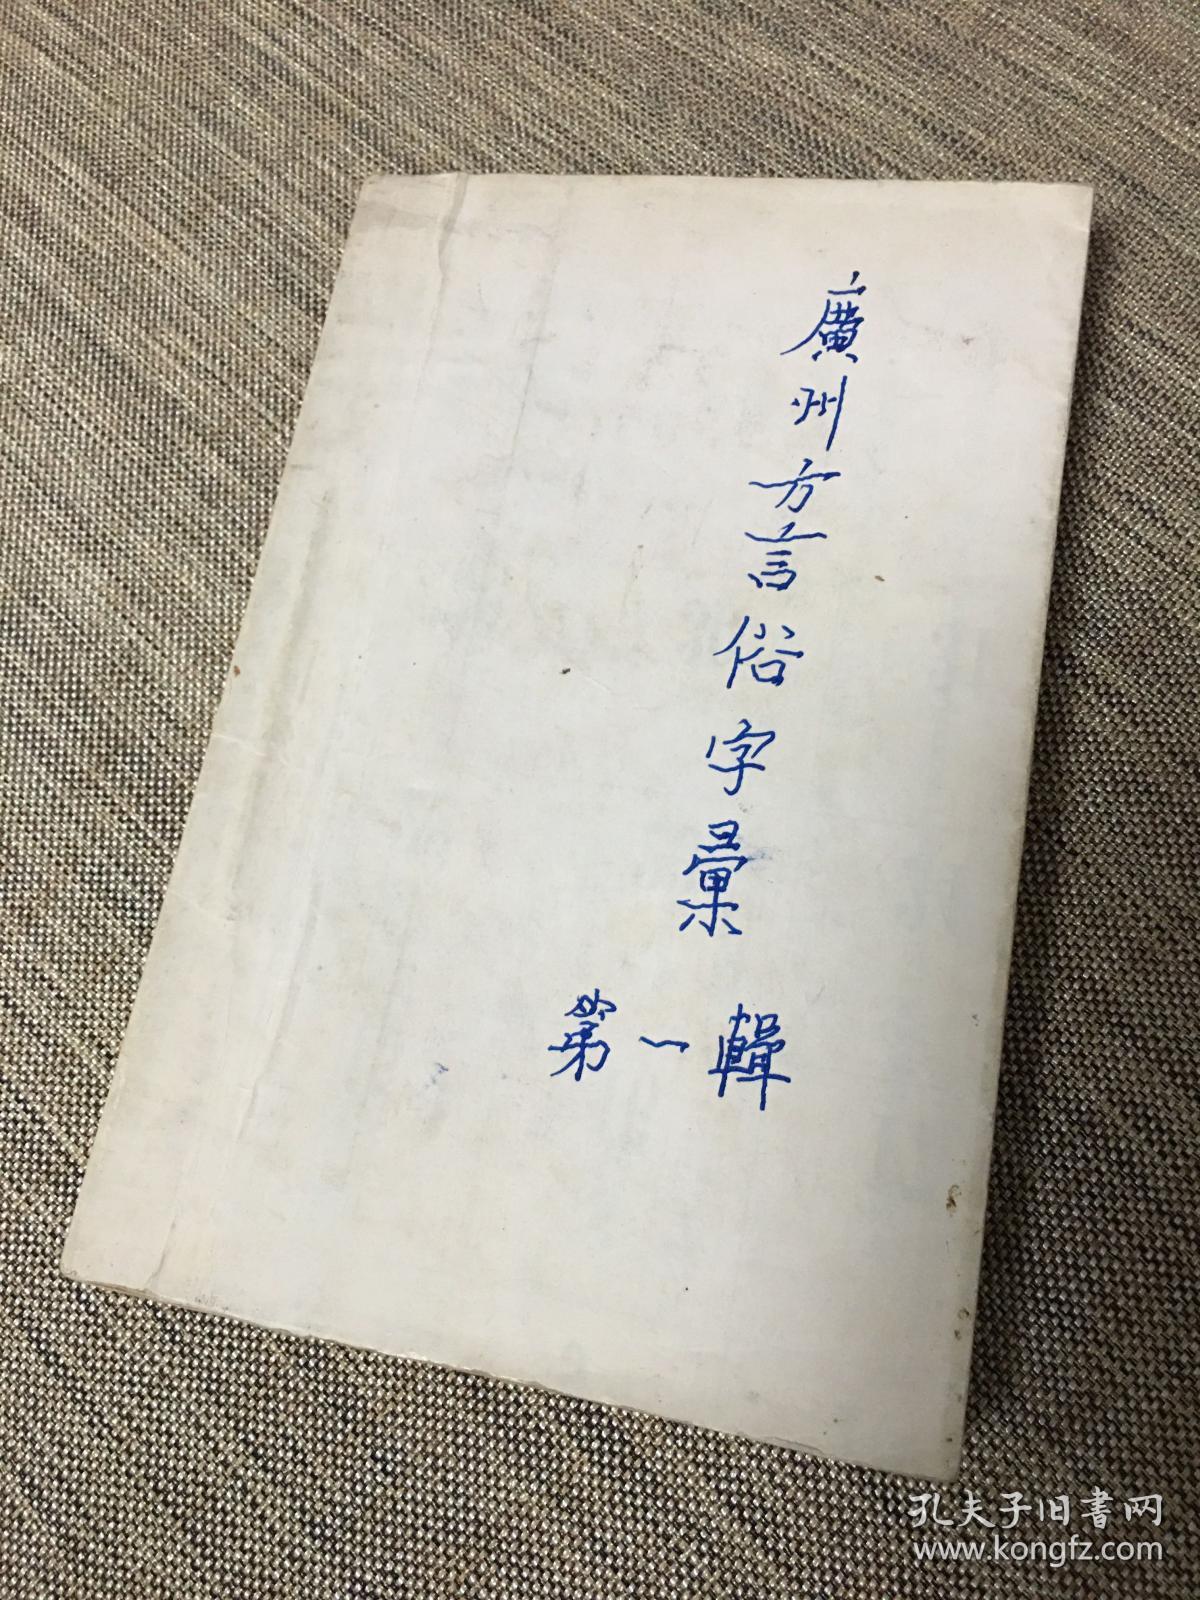 廣州方言俗字彙
第一輯
孔夫子旧書网
www.kongfz.com